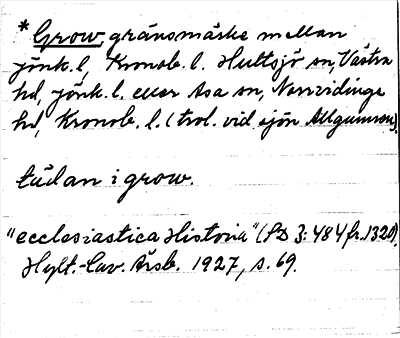 * Grow, gränsmärke mellan
Jönk. l, Kronob. l. Hultsjö sn, Västra
hd, Jönk. l. eller Asa sn, Norrvidinge
hd, Kronob. l. (trol. vid sjön Allgunnen).
tädan i grow.
"ecclesiastica Historia" (SD 3:484 fr. 1320).
Hylt.-Cav. Årsb. 1927, s. 69.